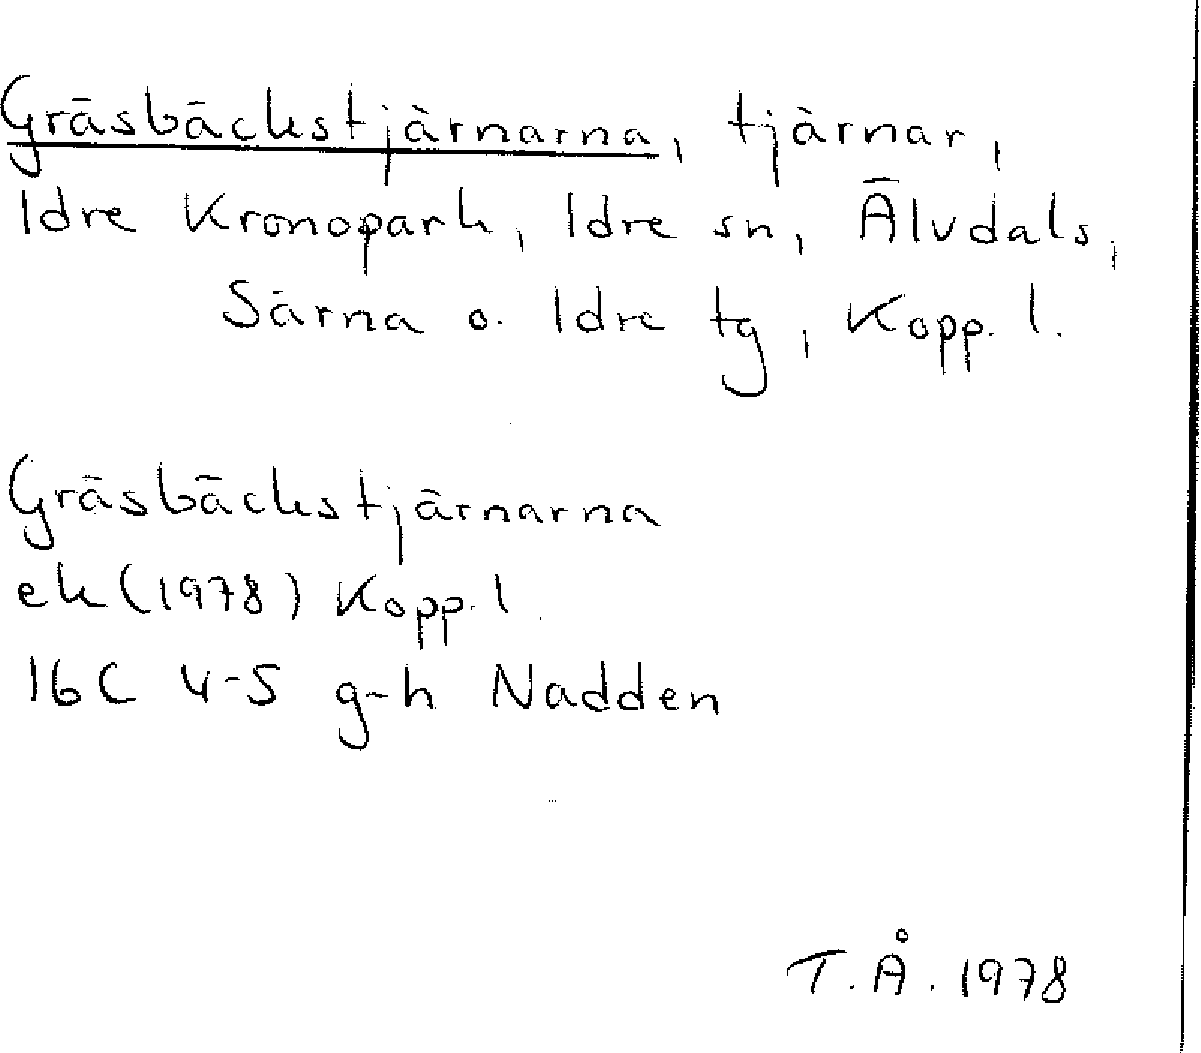 Gräsbäckstjärnarna, tjärnar,
Idre Kronopark, Idre sn, Älvdals,
Särna o. Idre tg, Kopp. l.
Gräsbäckstjärnarna
ek (1978) Kopp. l.
16C 4-5 g-h Nadden
T.Å. 1978